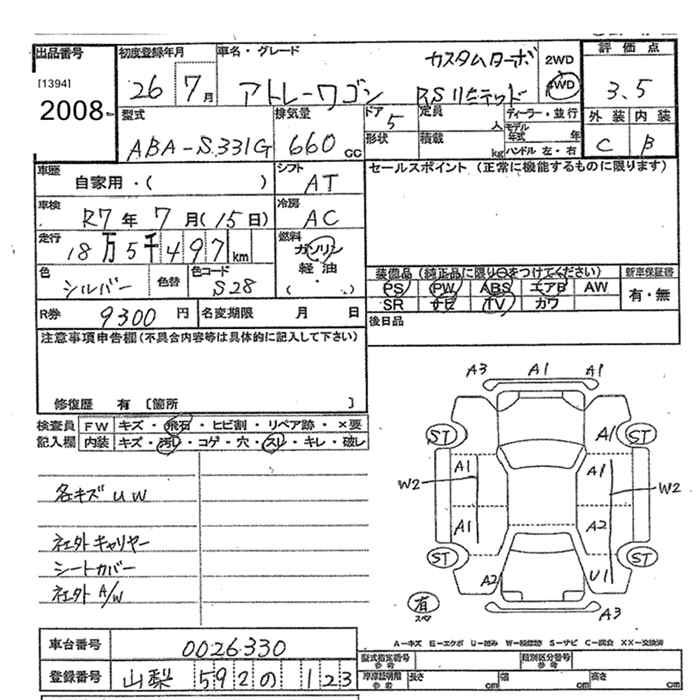 出品番号
[1394]
2008-
初度登録年月
26 7月
車名・グレード
カスタムターボ
アトレーワゴン RSリミテッド
2WD
4WD
評価点
3.5
外装 内装
C B
型式
ABA-S331G
排気量
660 cc
ドア
5
形状
定員
人
積載
kg
ディーラー・並行
モデル年式 年
ハンドル 左・右
車歴
自家用・( )
シフト
AT
セールスポイント(正常に機能するものに限ります)
車検
R7年 7月(15日)
冷房
AC
走行
18万5千497km
燃料
ガソリン
軽油
( ・ )
色
シルバー
色替
色コード
S28
装備品(純正品に限り○をつけてください)
新車保証書
PS PW ABS エアB AW
SR ナビ TV カワ
有・無
R券 9300 円
名変期限 月 日
後日品
注意事項申告欄(不具合内容等は具体的に記入して下さい)
修復歴 有 [箇所 ]
検査員記入欄
FW キズ・飛石・ヒビ割・リペア跡・×要
内装 キズ・汚レ・コゲ・穴・スレ・キレ・破レ
各キズUW
社外キャリヤー
シートカバー
社外A/W
A3 A1 A1
ST A1 ST
W2 A1 A1 W2
A1 A2
ST ST
A2 U1
有
スペア
A3
A-キズ E-エクボ U-凹み W-板金跡 S-サビ C-腐食 XX-交換済
車台番号 0026330
登録番号 山梨 592 の 123
型式指定番号
参考
類別区分番号
参考
車庫証明欄
参考
長さ cm
幅 cm
高さ cm